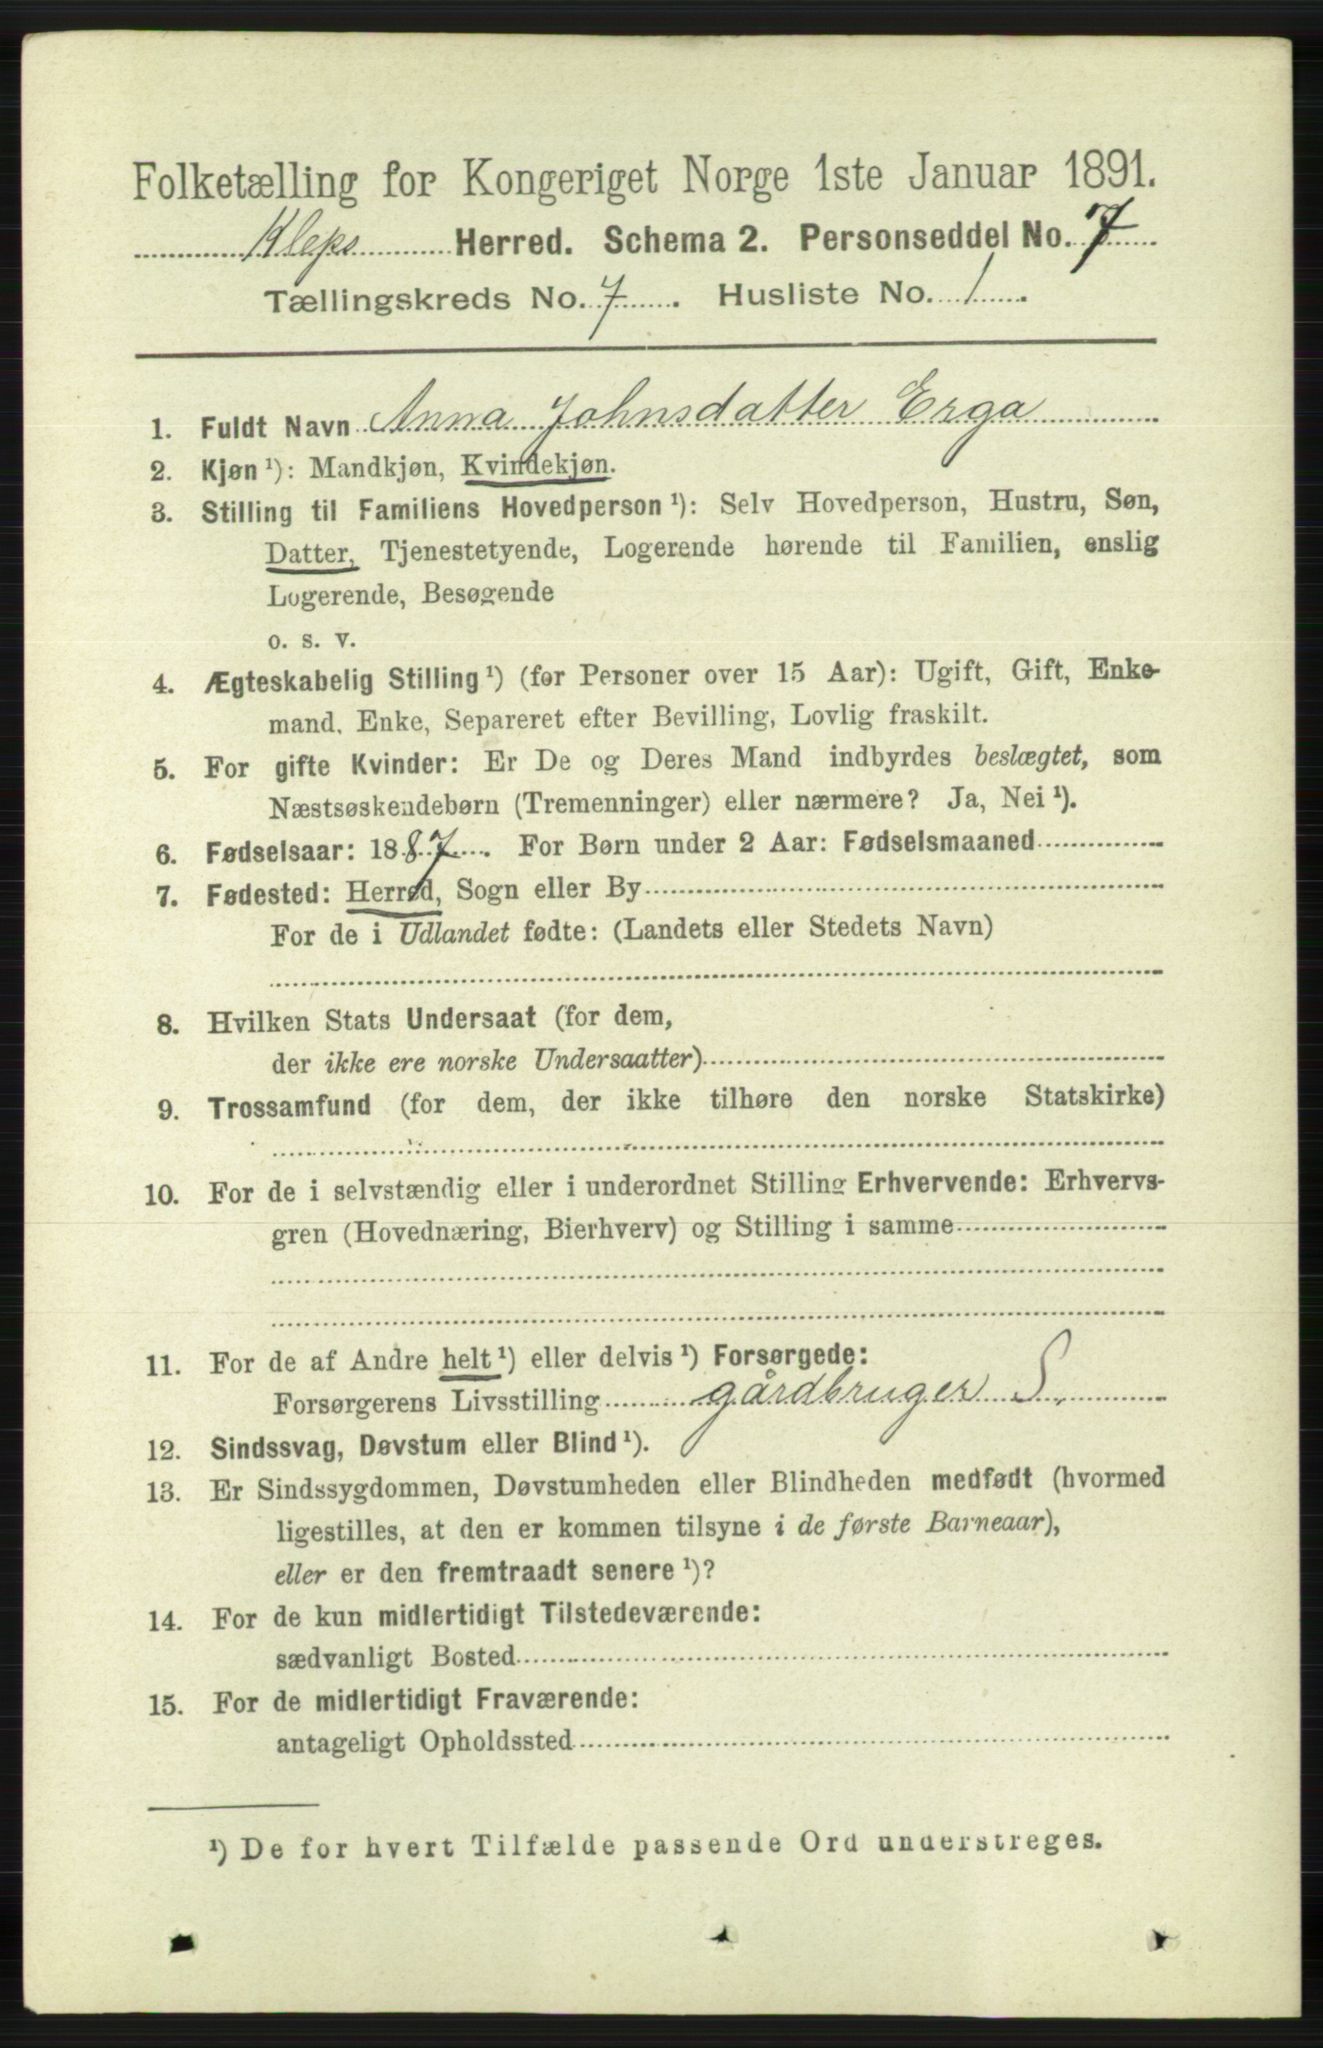 Folketælling for Kongeriget Norge 1ste Januar 1891.
Kleps Herred. Schema 2. Personseddel No. 7
Tællingskreds No. 7. Husliste No. 1.
1. Fuldt Navn Anna Johnsdatter Erga
2. Kjøn ¹): Mandkjøn, Kvindekjøn.
3. Stilling til Familiens Hovedperson ¹): Selv Hovedperson, Hustru, Søn,
Datter, Tjenestetyende, Logerende hørende til Familien, enslig
Logerende, Besøgende
o. s. v.
4. Ægteskabelig Stilling ¹) (for Personer over 15 Aar): Ugift, Gift, Enke-
mand, Enke, Separeret efter Bevilling, Lovlig fraskilt.
5. For gifte Kvinder: Er De og Deres Mand indbyrdes beslægtet, som
Næstsøskendebørn (Tremenninger) eller nærmere? Ja, Nei ¹).
6. Fødselsaar: 1887. For Børn under 2 Aar: Fødselsmaaned
7. Fødested: Herred, Sogn eller By
For de i Udlandet fødte: (Landets eller Stedets Navn)
8. Hvilken Stats Undersaat (for dem,
der ikke ere norske Undersaatter)
9. Trossamfund (for dem, der ikke tilhøre den norske Statskirke)
10. For de i selvstændig eller i underordnet Stilling Erhvervende: Erhvervs-
gren (Hovednæring, Bierhverv) og Stilling i samme
11. For de af Andre helt ¹) eller delvis ¹) Forsørgede:
Forsørgerens Livsstilling gårdbruger S.
12. Sindssvag, Døvstum eller Blind ¹).
13. Er Sindssygdommen, Døvstumheden eller Blindheden medfødt (hvormed
ligestilles, at den er kommen tilsyne i de første Barneaar),
eller er den fremtraadt senere ¹)?
14. For de kun midlertidigt Tilstedeværende:
sædvanligt Bosted
15. For de midlertidigt Fraværende:
antageligt Opholdssted
¹) De for hvert Tilfælde passende Ord understreges.